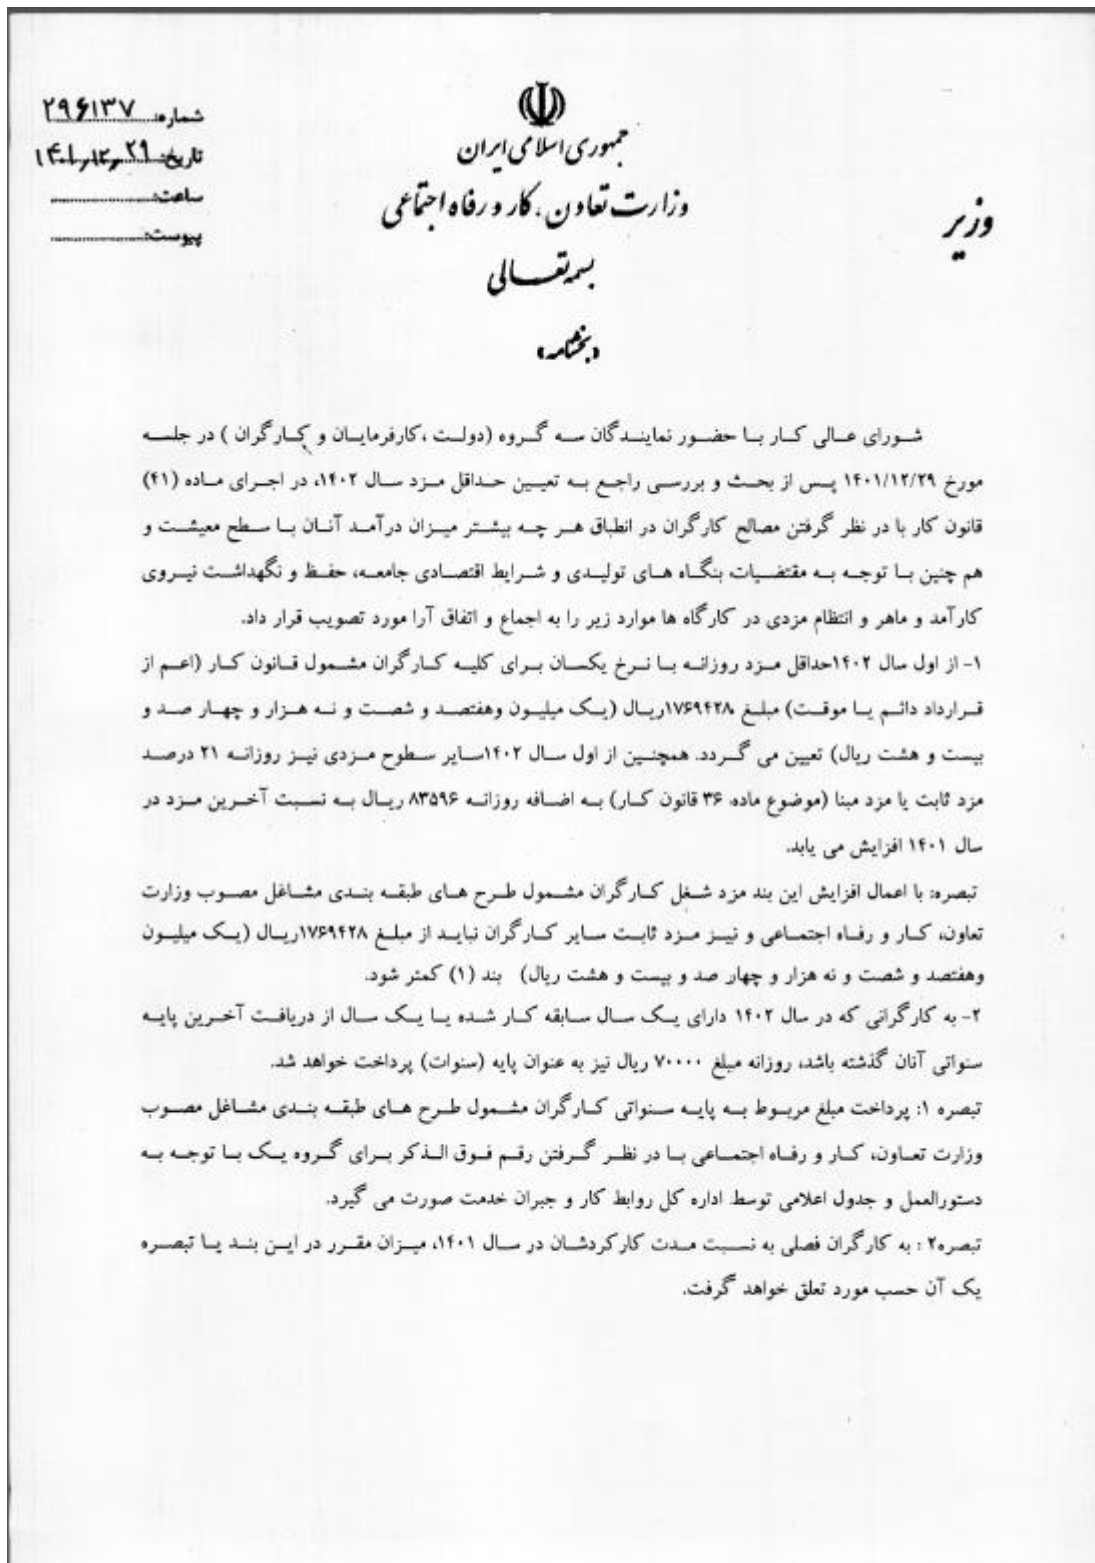 شماره: ۲۹۶۱۳۷
تاریخ: ۱۴۰۱٫۱۲٫۲۹
ساعت:
پیوست:
جمهوری اسلامی ایران
وزارت تعاون، کار و رفاه اجتماعی
وزیر
بسمه تعالی
«بخشنامه»
شورای عالی کار با حضور نمایندگان سه گروه (دولت ،کارفرمایان و کارگران ) در جلسه
مورخ ۱۴۰۱/۱۲/۲۹ پس از بحث و بررسی راجع به تعیین حداقل مزد سال ۱۴۰۲، در اجرای ماده (۴۱)
قانون کار با در نظر گرفتن مصالح کارگران در انطباق هر چه بیشتر میزان درآمد آنان با سطح معیشت و
هم چنین با توجه به مقتضیات بنگاه های تولیدی و شرایط اقتصادی جامعه، حفظ و نگهداشت نیروی
کارآمد و ماهر و انتظام مزدی در کارگاه ها موارد زیر را به اجماع و اتفاق آرا مورد تصویب قرار داد.
۱- از اول سال ۱۴۰۲حداقل مزد روزانه با نرخ یکسان برای کلیه کارگران مشمول قانون کار (اعم از
قرارداد دائم یا موقت) مبلغ ۱۷۶۹۴۲۸ریال (یک میلیون وهفتصد و شصت و نه هزار و چهار صد و
بیست و هشت ریال) تعیین می گردد. همچنین از اول سال ۱۴۰۲سایر سطوح مزدی نیز روزانه ۲۱ درصد
مزد ثابت یا مزد مبنا (موضوع ماده ۳۶ قانون کار) به اضافه روزانه ۸۳۵۹۶ ریال به نسبت آخرین مزد در
سال ۱۴۰۱ افزایش می یابد.
تبصره: با اعمال افزایش این بند مزد شغل کارگران مشمول طرح های طبقه بندی مشاغل مصوب وزارت
تعاون، کار و رفاه اجتماعی و نیز مزد ثابت سایر کارگران نباید از مبلغ ۱۷۶۹۴۲۸ریال (یک میلیون
وهفتصد و شصت و نه هزار و چهار صد و بیست و هشت ریال) بند (۱) کمتر شود.
۲- به کارگرانی که در سال ۱۴۰۲ دارای یک سال سابقه کار شده یا یک سال از دریافت آخرین پایه
سنواتی آنان گذشته باشد، روزانه مبلغ ۷۰۰۰۰ ریال نیز به عنوان پایه (سنوات) پرداخت خواهد شد.
تبصره ۱: پرداخت مبلغ مربوط به پایه سنواتی کارگران مشمول طرح های طبقه بندی مشاغل مصوب
وزارت تعاون، کار و رفاه اجتماعی با در نظر گرفتن رقم فوق الذکر برای گروه یک با توجه به
دستورالعمل و جدول اعلامی توسط اداره کل روابط کار و جبران خدمت صورت می گیرد.
تبصره۲ : به کارگران فصلی به نسبت مدت کارکردشان در سال ۱۴۰۱، میزان مقرر در این بند یا تبصره
یک آن حسب مورد تعلق خواهد گرفت.